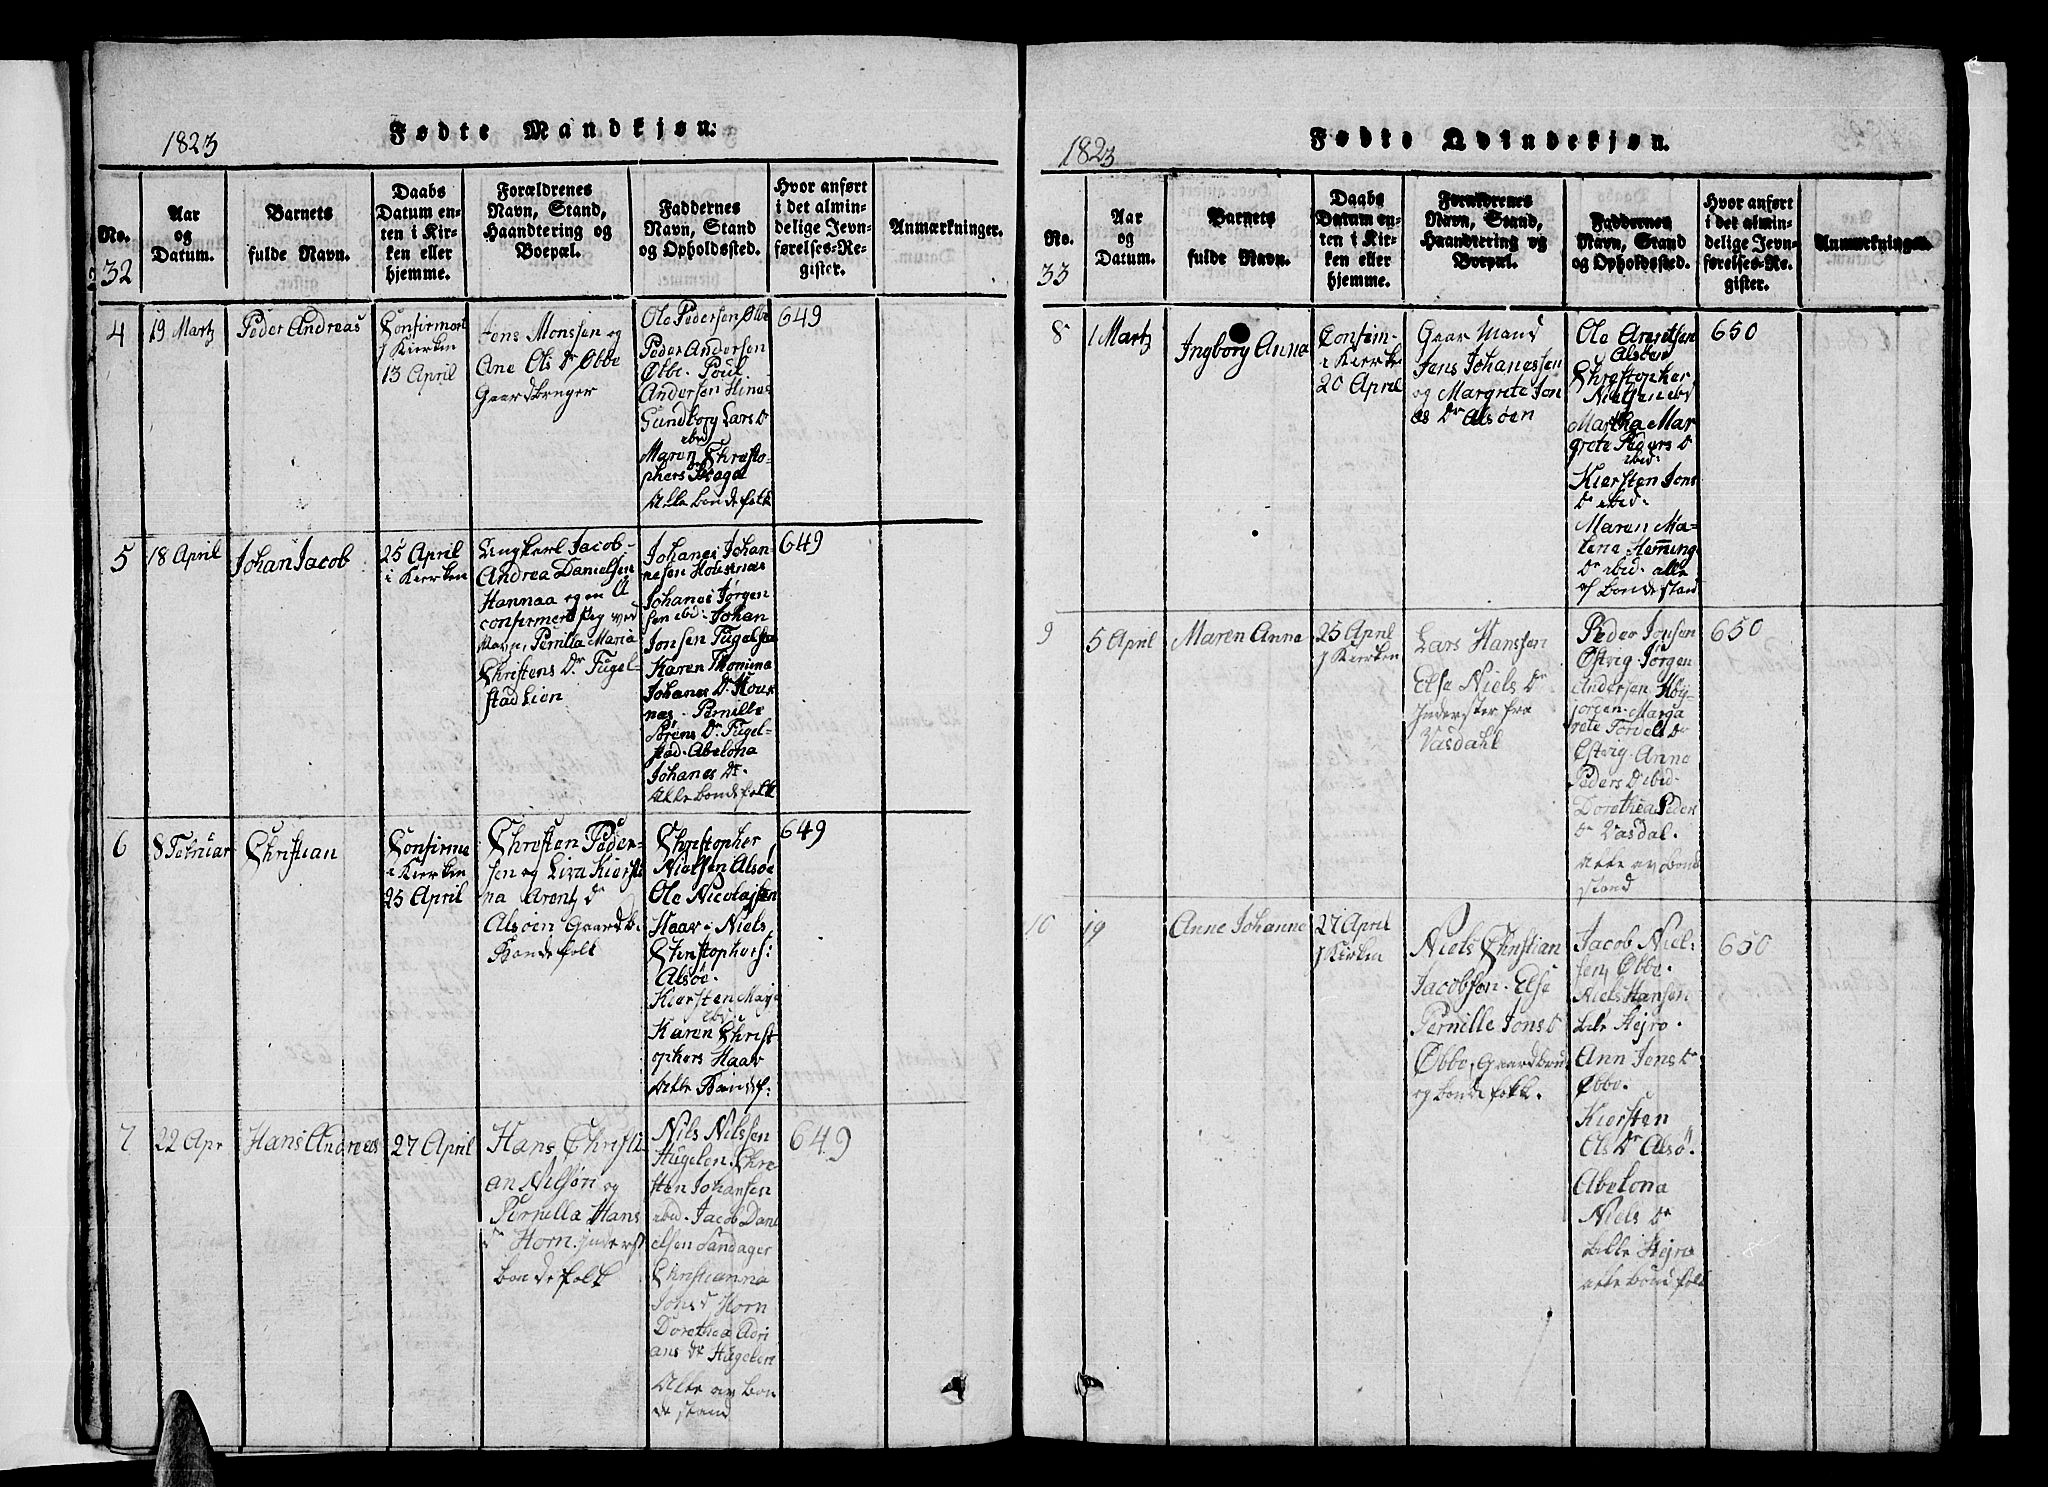 1823
Fødte Mandkjøn:
No.
32
Aar
og
Datum.
Barnets
fulde Navn.
Daabs
Datum en-
ten i Kir-
ken eller
hjemme.
Forældrenes
Navn, Stand,
Haandtering og
Boepæl.
Faddernes
Navn, Stand
og Opholdssted.
Hvor anført
i det almin-
delige Jevn-
førelses-Re-
gister.
Anmærkninger.
4
19 Martz
Peder Andreas
Confirmert
i Kierken
13 April
Jens Monssen og
Ane Ols Dr Øbbe
Gaardbruger
Ole Pedersen Øbe
Peder Andersen
Øbe. Poul
Andersen Hines
Gundborg Lars D
ebd
Maren Christo-
phers Braga
Alle bondefolk
649
5
18 April
Johan Jacob
25 April
i Kierken
Ungkerl Jacob
Andrea Danielsen
Hannaa og en u
confirmert Pig ved
Navn, Pernilla Maria
Christens Dr Fugel-
stad Lien
Johanes Johan-
nesen Housnas
Johanes Jørgen
sen ebd: Johan
Jonsen Fugelsta
Karen Thomina
Johanes D. Hous
nas. Pernille
Sørens Dr Fugel-
stad. Abelona
Johanes Dr.
Alle bondefolk
649
6
8 Februar
Christian
Confirme
i Kierken
25 April
Christen Peder-
sen og Liza Kiersti
na Arentz d
Alsøen Gaardb.
Bondefolk
Christopher
Nielsen Alsøe
Ole Nicolajsen
Haar. Niels
Christophers:
Alsøe.
Kiersten Marja
ebd:
Karen Christ
ophers Haar
Alle Bondef:
649
7
22 Apr
Hans Andreas
27 April
Hans Christi
an Nilsøn og
Pernella Hans
Dr Horn. inderst
bondefolk
Nils Nilssen
Hugelen. Chre-
sten Johansen
ebd. Jacob Dani
elsen Sandager
Christianna
Johs d Horn
Dorethea Adri
ans dr Hugelen
Alle av bon
de stand
649
1823
Fødte Qvindekjøn.
No.
33
Aar
og
Datum.
Barnets
fulde Navn.
Daabs
Datum en-
ten i Kir-
ken eller
hjemme.
Forældrenes
Navn, Stand,
Haandtering og
Boepæl.
Faddernes
Navn, Stand
og Opholdssted.
Hvor anført
i det almin-
delige Jevn-
førelses-Re-
gister.
Anmærkninger.
8
1 Martz
Ingborg Anna
Confirm-
i Kierke
20 April
Gaar Mand
Jens Johanessen
og Margrete Jon
as Dr Alsøen
Ole Arentsen
Alsøen
Christopher
Nielsen ebd
Martha Mar
grete Peders D
ebd:
Kiersten Jons
Dr ebd.
Maren Ma-
lena Hemming
Dr ebd. alle
af bondestand
650
9
5 April
Maren Anna
25 April
i Kierken
Lars Hanssen
Else Niels Dr
Inderster fra
Vasdahl
Peder Jonsen
Østvig. Jørgen
Andersen Høy-
jorgen. Marga
rete Torvels Dr
Østvig. Anna
Peders D ebd.
Dorethea Peder
Dr Vasdal.
Alle av bonde
stand
650
10
19
Anne Johanna
27 April
i Kierken
Niels Christian
Jacobsen. Else
Pernille Jons D
Øbbe, Gaardbrug
og bondefolk.
Jacob Niel-
sen, Øbbe.
Niels Hansen
Lille Hejro.
Ann Jens Dr
Øbbe.
Kiersten
Ols Dr Alsø.
Abelona
Niels Dr
Lille Hejro
alle bondefolk
650